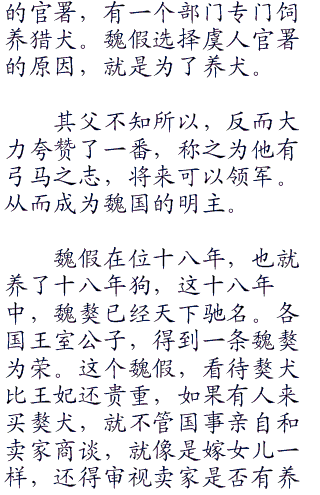 的官署，有一个部门专门饲
养猎犬。魏假选择虞人官署
的原因，就是为了养犬。
其父不知所以，反而大
力夸赞了一番，称之为他有
弓马之志，将来可以领军。
从而成为魏国的明主。
魏假在位十八年，也就
养了十八年狗，这十八年
中，魏獒已经天下驰名。各
国王室公子，得到一条魏獒
为荣。这个魏假，看待獒犬
比王妃还贵重，如果有人来
买獒犬，就不管国事亲自和
卖家商谈，就像是嫁女儿一
样，还得审视卖家是否有养